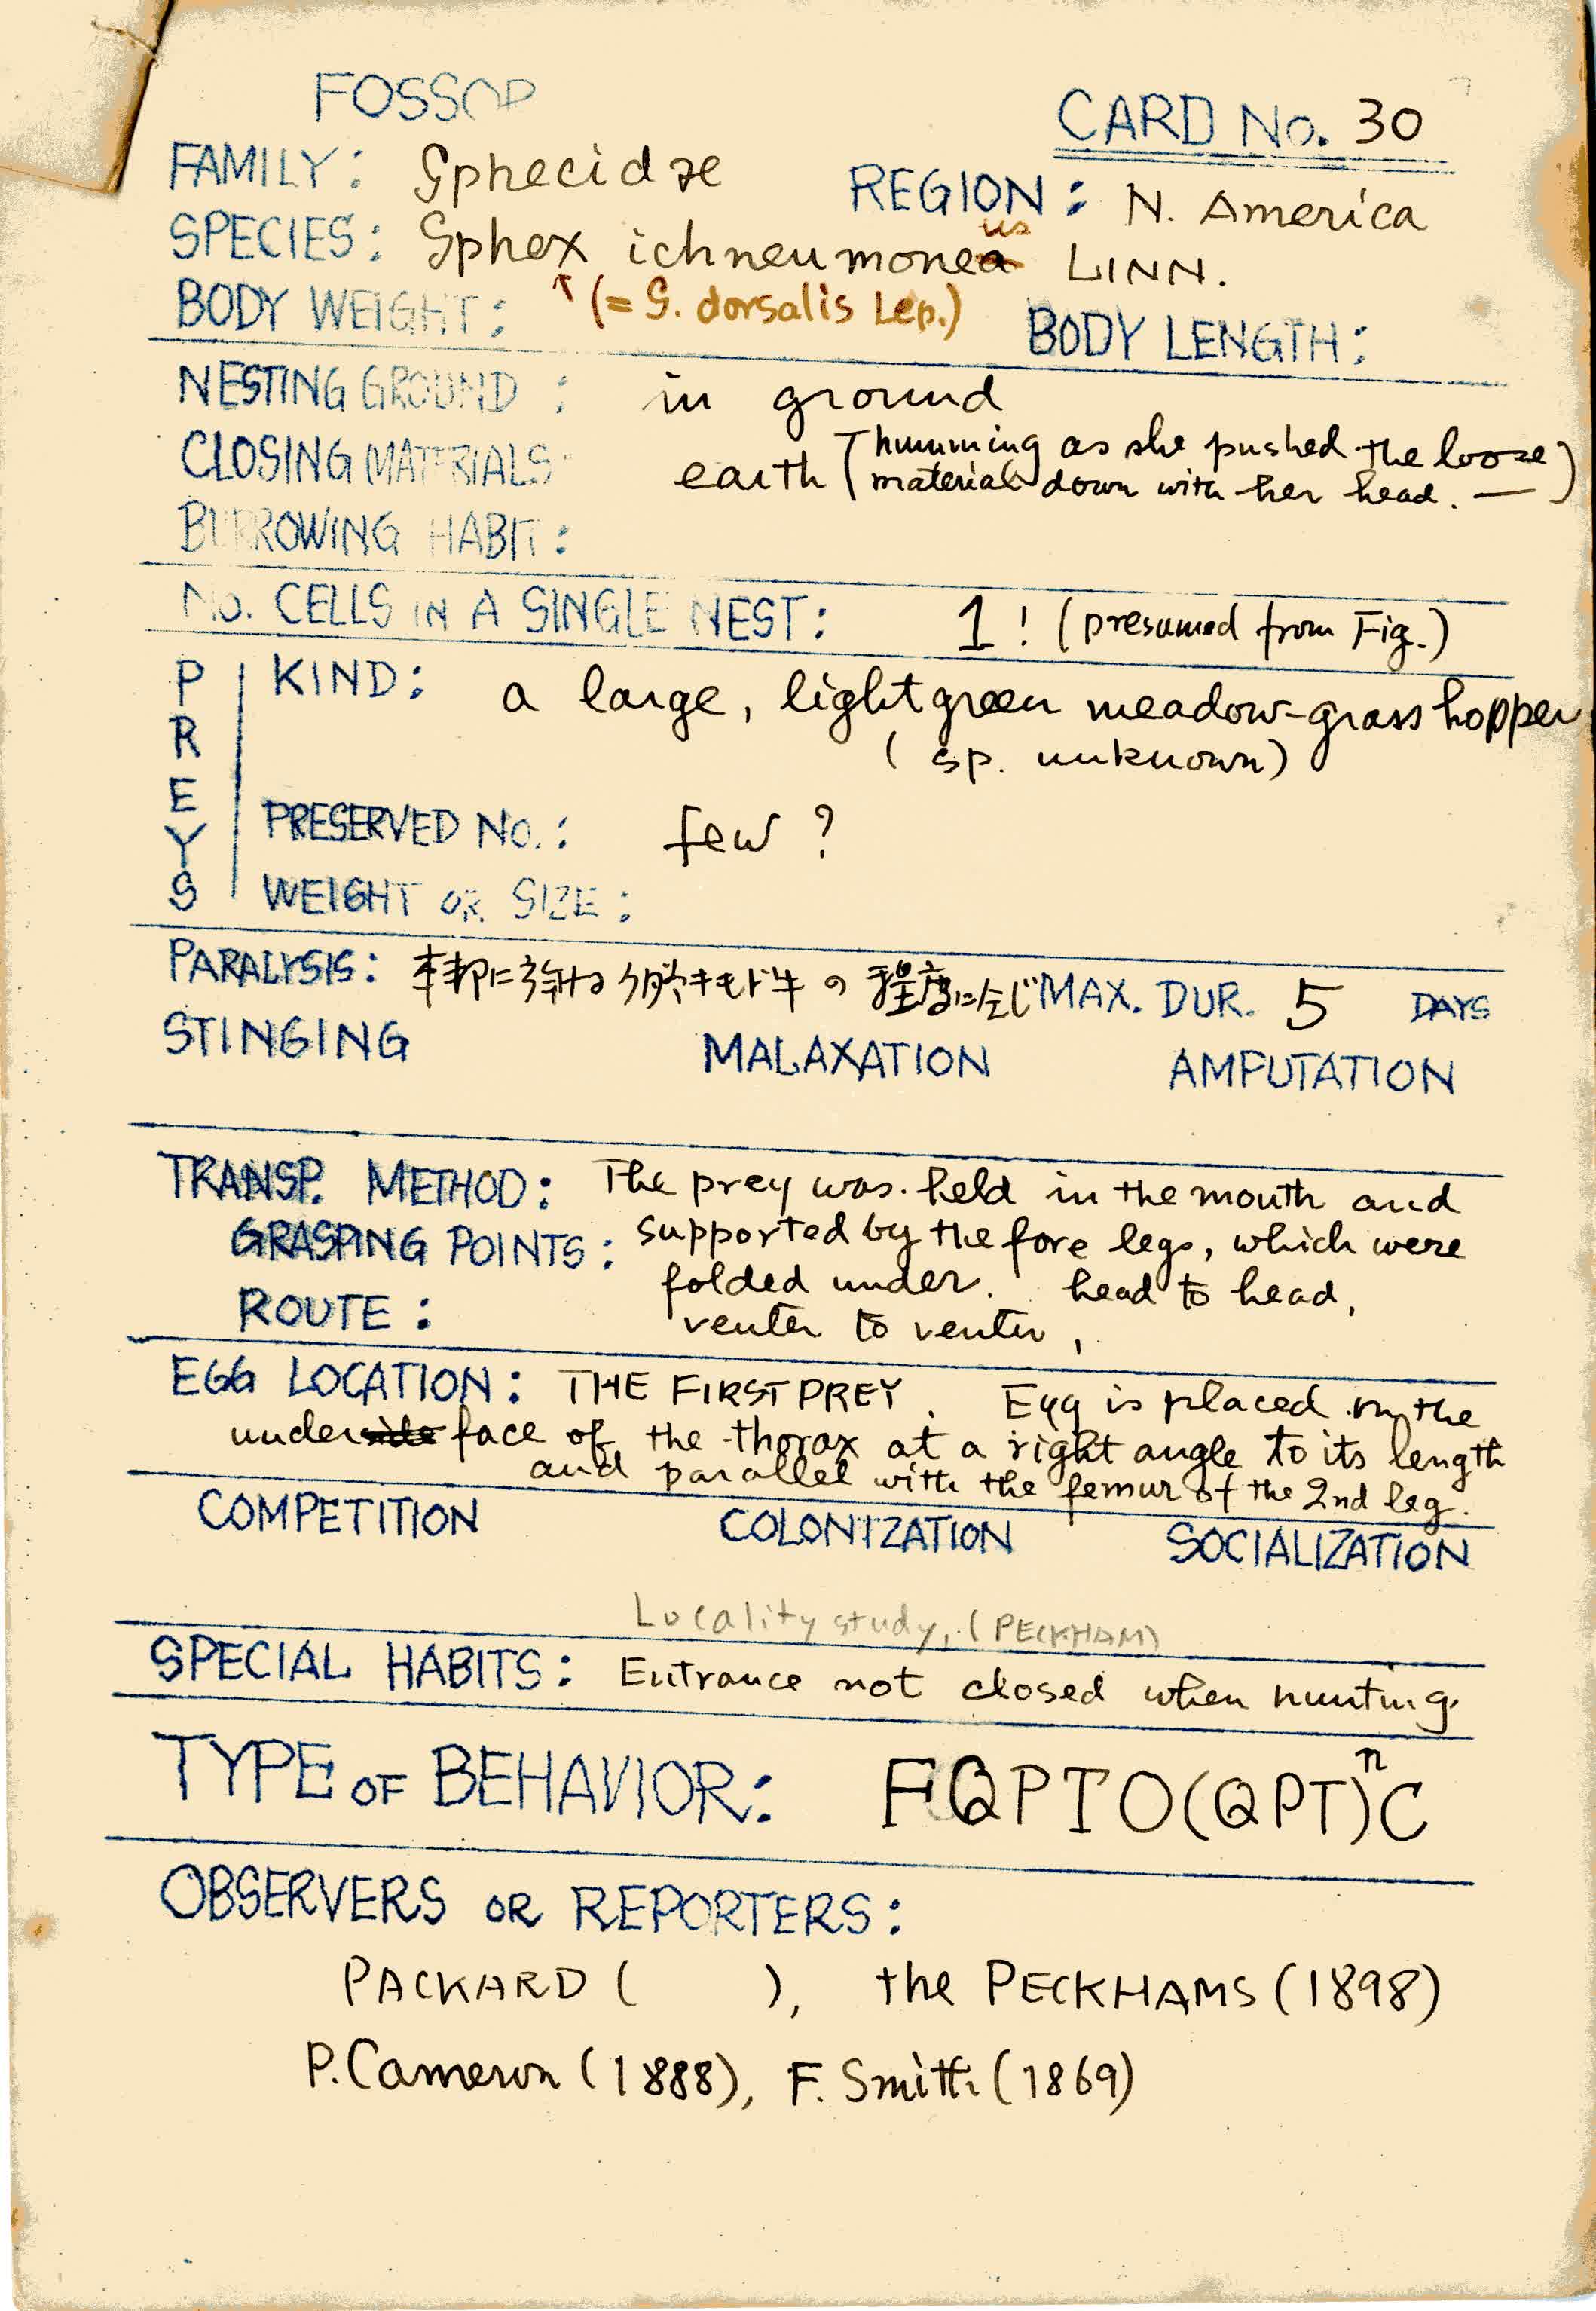 FOSSOR
CARD No. 30
FAMILY: Sphecidae
REGION: N. America
SPECIES: Sphex ichneumonea us LINN.
BODY WEIGHT: ↑(= S. dorsalis Lep.) BODY LENGTH:
NESTING GROUND: in ground
CLOSING MATERIALS: earth (humming as she pushed the loose
material down with her head. —)
BURROWING HABIT:
No. CELLS IN A SINGLE NEST: 1! (presumed from Fig.)
PREYS
KIND: a large, light green meadow-grasshopper
(sp. unknown)
PRESERVED No.: few ?
WEIGHT OR SIZE:
PARALYSIS: の程度に MAX. DUR. 5 DAYS
STINGING MALAXATION AMPUTATION
TRANSP. METHOD: The prey was held in the mouth and
GRASPING POINTS: supported by the fore legs, which were
folded under. head to head,
ROUTE: venter to venter,
EGG LOCATION: THE FIRST PREY. Egg is placed on the
underside face of the thorax at a right angle to its length
and parallel with the femur of the 2nd leg.
COMPETITION COLONIZATION SOCIALIZATION
Locality study, (PECKHAM)
SPECIAL HABITS: Entrance not closed when hunting.
TYPE OF BEHAVIOR: FQPTO(QPT)ⁿC
OBSERVERS OR REPORTERS:
PACKARD ( ), the PECKHAMS (1898)
P. Cameron (1888), F. Smith (1869)